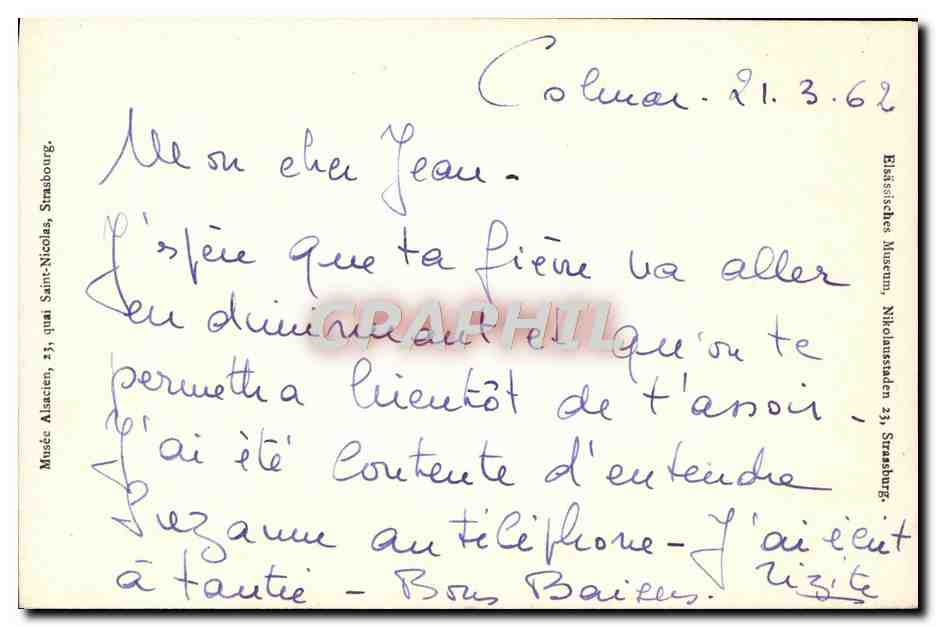 Colmar. 21.3.62
Mon cher Jean -
J'espère que ta fièvre va aller
en diminuant et qu'on te
permettra bientôt de t'assoir -
J'ai été contente d'entendre
Suzanne au téléphone - J'ai écrit
à tantie - Bons Baisers.
Musée Alsacien, 23, quai Saint-Nicolas, Strasbourg.
Elsässisches Museum, Nikolausstaden 23, Strassburg.
CPAPHIL